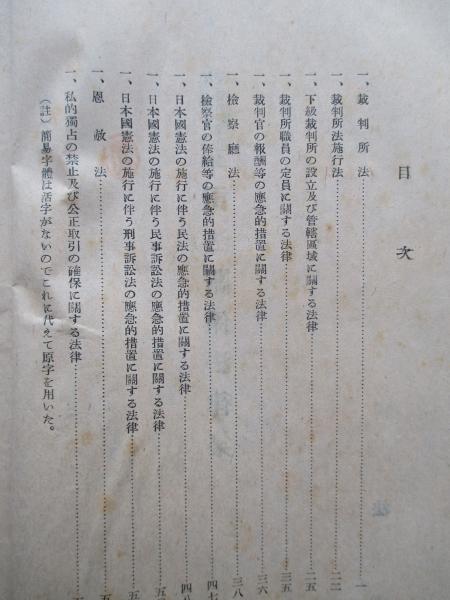 目次
一、裁判所法…………一
一、裁判所法施行法…………二二
一、下級裁判所の設立及び管轄區域に關する法律…………二五
一、裁判所職員の定員に關する法律…………三五
一、裁判官の報酬等の應急的措置に關する法律…………三六
一、檢察廳法…………三八
一、檢察官の俸給等の應急的措置に關する法律…………四七
一、日本國憲法の施行に伴う民法の應急的措置に關する法律…………四八
一、日本國憲法の施行に伴う民事訴訟法の應急的措置に關する法律…………五
一、日本國憲法の施行に伴う刑事訴訟法の應急的措置に關する法律…………五
一、恩赦法…………五
一、私的獨占の禁止及び公正取引の確保に關する法律…………
(註) 簡易字體は活字がないのでこれに代えて原字を用いた。